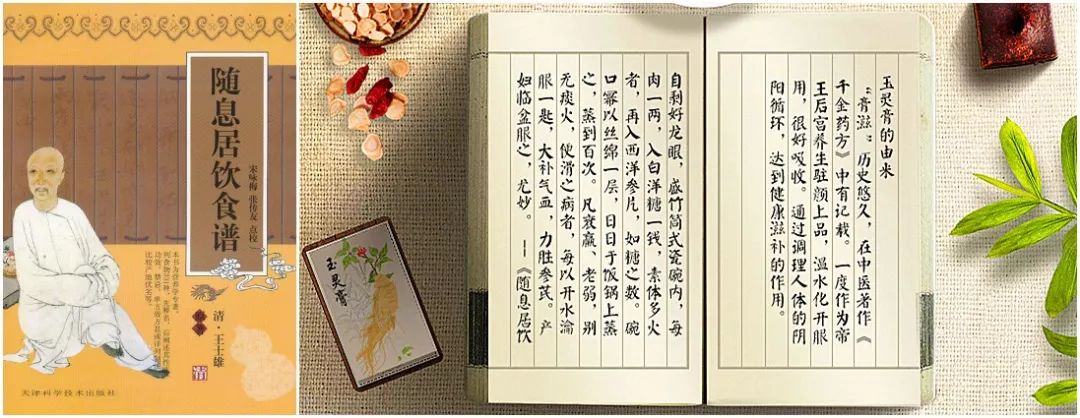 随息居饮食谱
宋咏梅 张传友 点校
本书为营养学专著,
清·王士雄
天津科学技术出版社
玉灵膏
玉灵膏的由来
“膏滋”历史悠久,在中医著作《
千金药方》中有记载。一度作为帝
王后宫养生驻颜上品,温水化开服
用,很好吸收。通过调理人体的阴
阳循环,达到健康滋补的作用。
自剥好龙眼,盛竹筒式瓷碗内,每
肉一两,入白洋糖一钱,素体多火
者,再入西洋参片,如糖之数。碗
口幂以丝绵一层,日日于饭锅上蒸
之,蒸到百次。凡衰羸、老弱,别
无痰火,便滑之病者,每以开水瀹
服一匙,大补气血,力胜参芪。产
妇临盆服之,尤妙。——《随息居饮